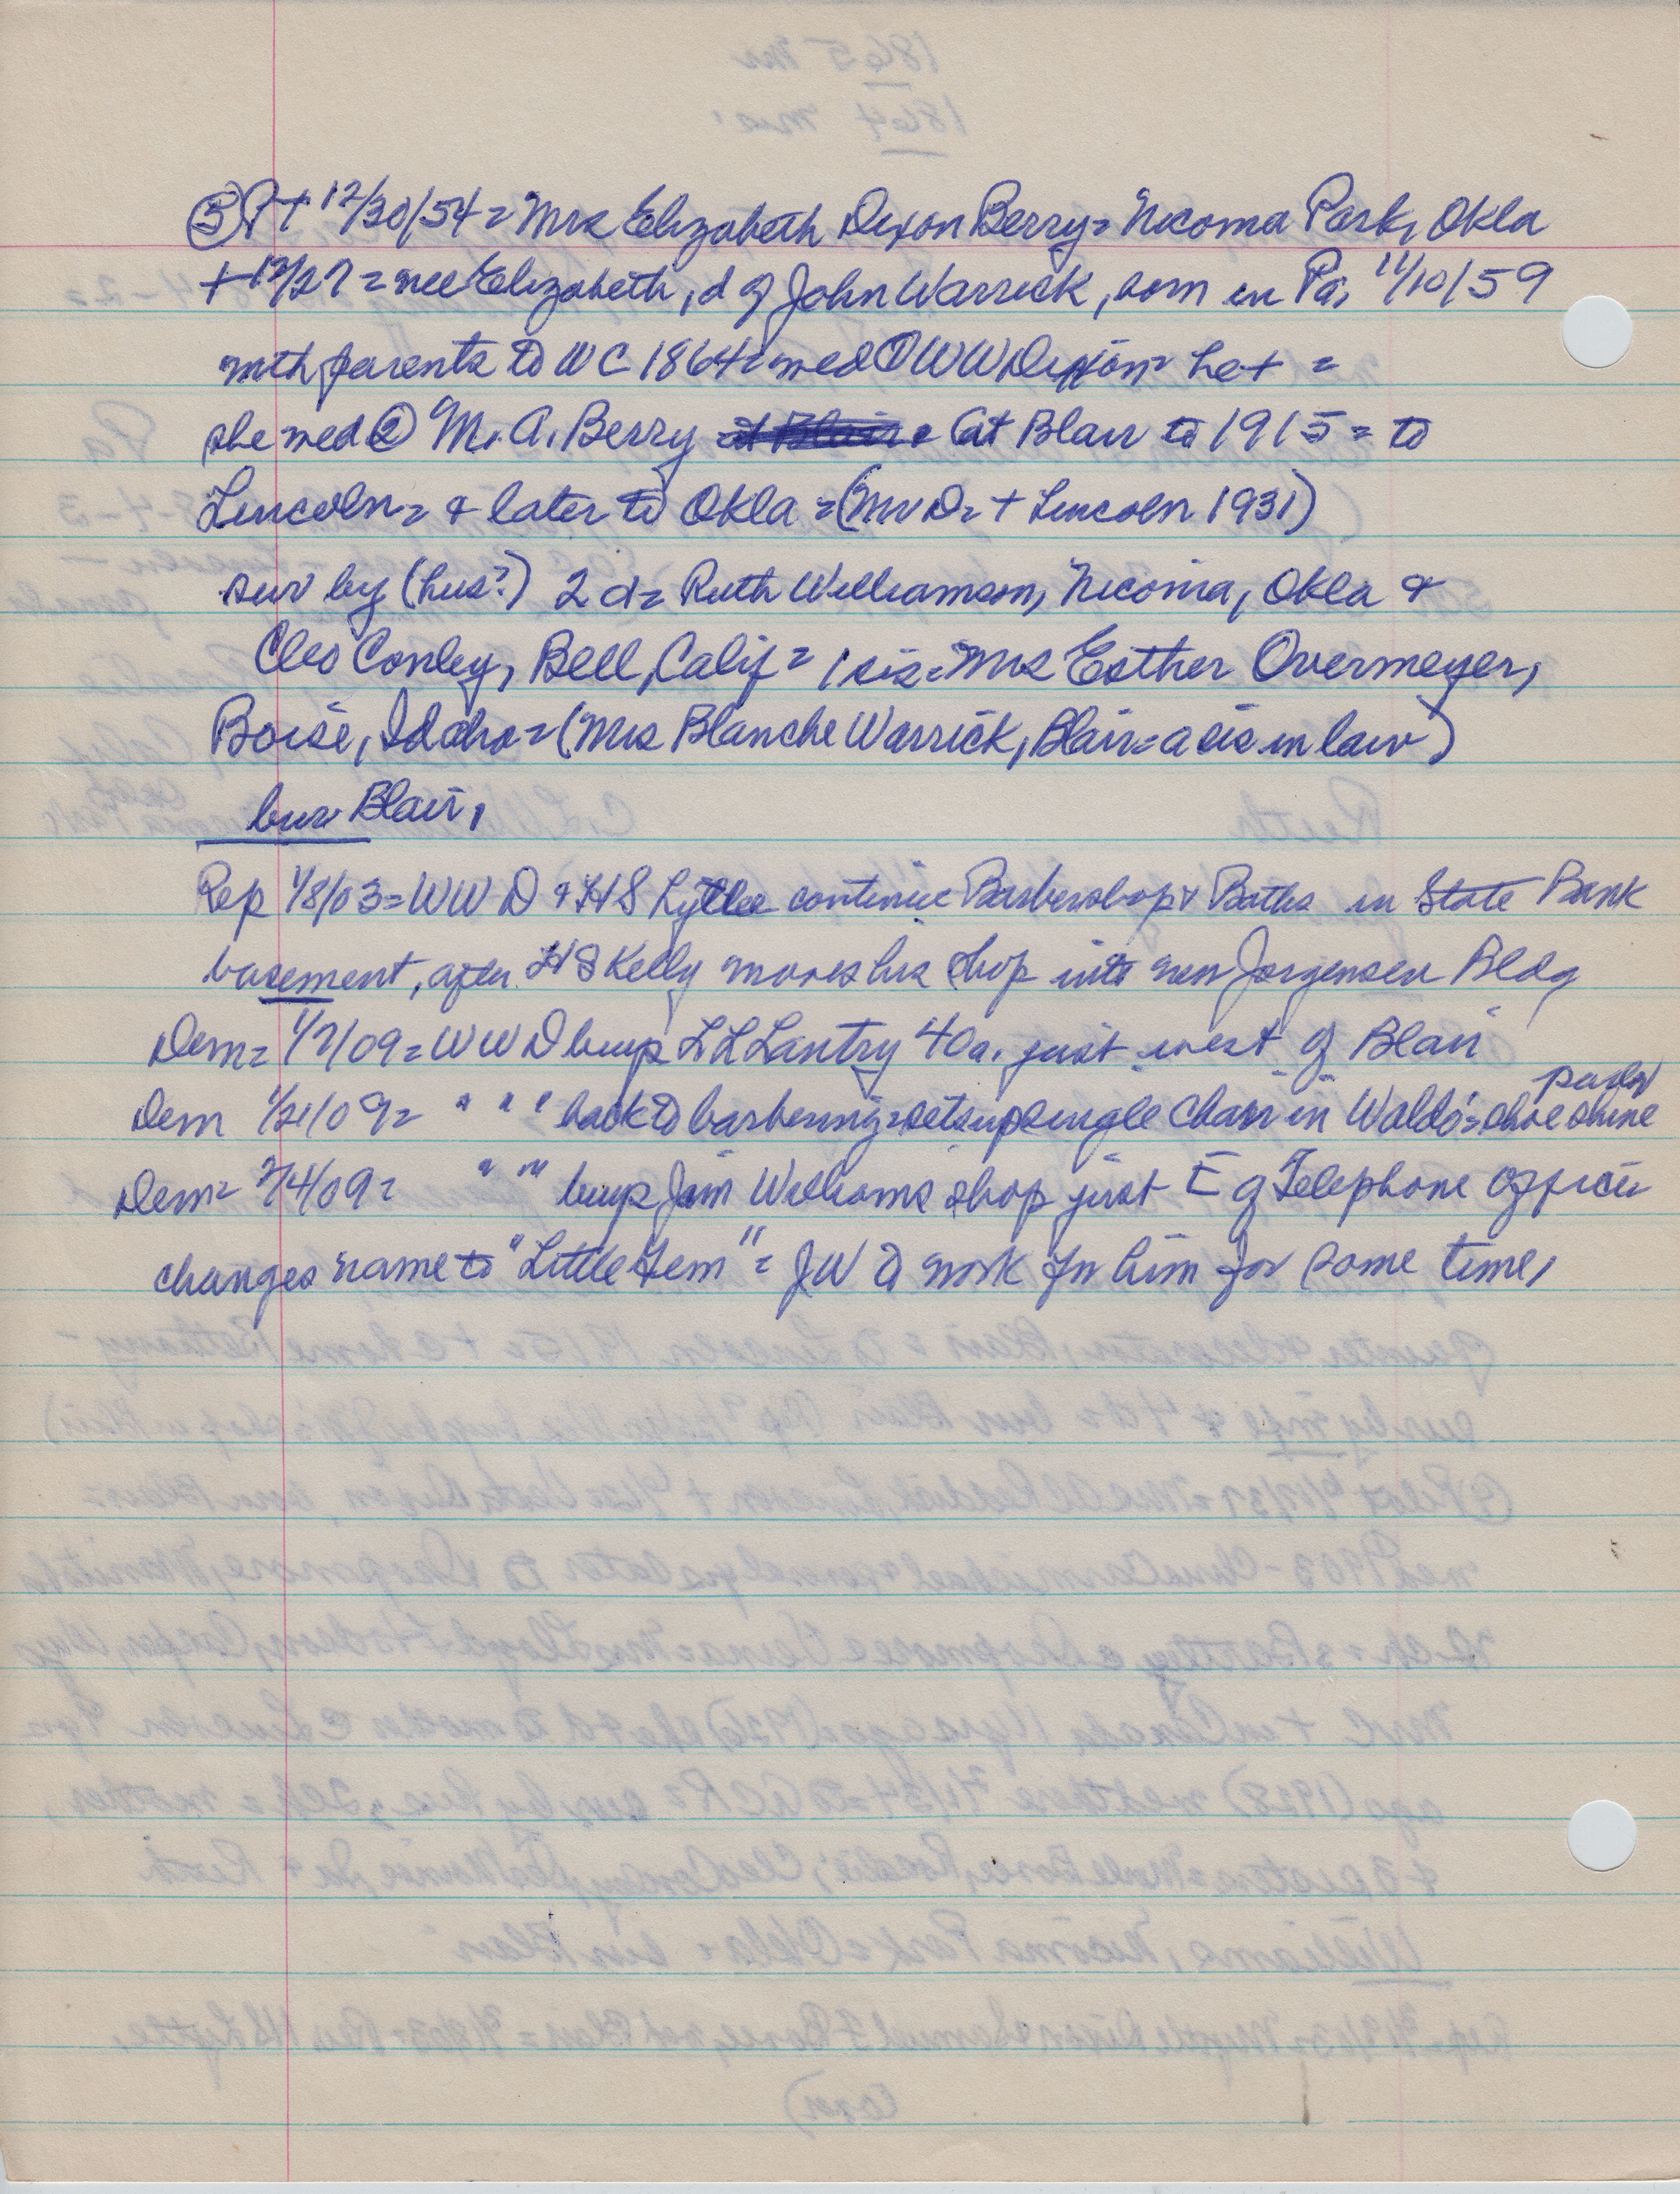 ⑤ P+ 12/30/54 = Mrs Elizabeth Dixon Berry = Nicoma Park, Okla
+ 12/27 = nee Elizabeth, d of John Warrick, born in Pa, 11/10/59
with parents to WC 1864 = wed ① WW Dixon = he + =
she wed ② M. A. Berry at Blair = at Blair to 1915 = to
Lincoln = & later to Okla = (Mr D = + Lincoln 1931)
sur by (hus?) 2 d = Ruth Williamson, Nicoma, Okla &
Cleo Conley, Bell, Calif = 1 sis = Mrs Esther Overmeyer,
Boise, Idaho = (Mrs Blanche Warrick, Blair = a sis in law)
bur Blair,
Rep 1/8/03 = WW D & HS Lyttle continue Barbershop & Baths in State Bank
basement, after HS Kelly moves his shop into new Jorgensen Bldg
Dem = 1/7/09 = WW D buys L L Lantry 40 a. just west of Blair
Dem 1/21/09 = " " " back to barbering = sets up single chair in Waldo's = shoe shine parlor
Dem = 2/4/09 = " " " buys Jim Williams shop just E of Telephone Office
changes name to "Little Gem" = JW D work for him for some time,